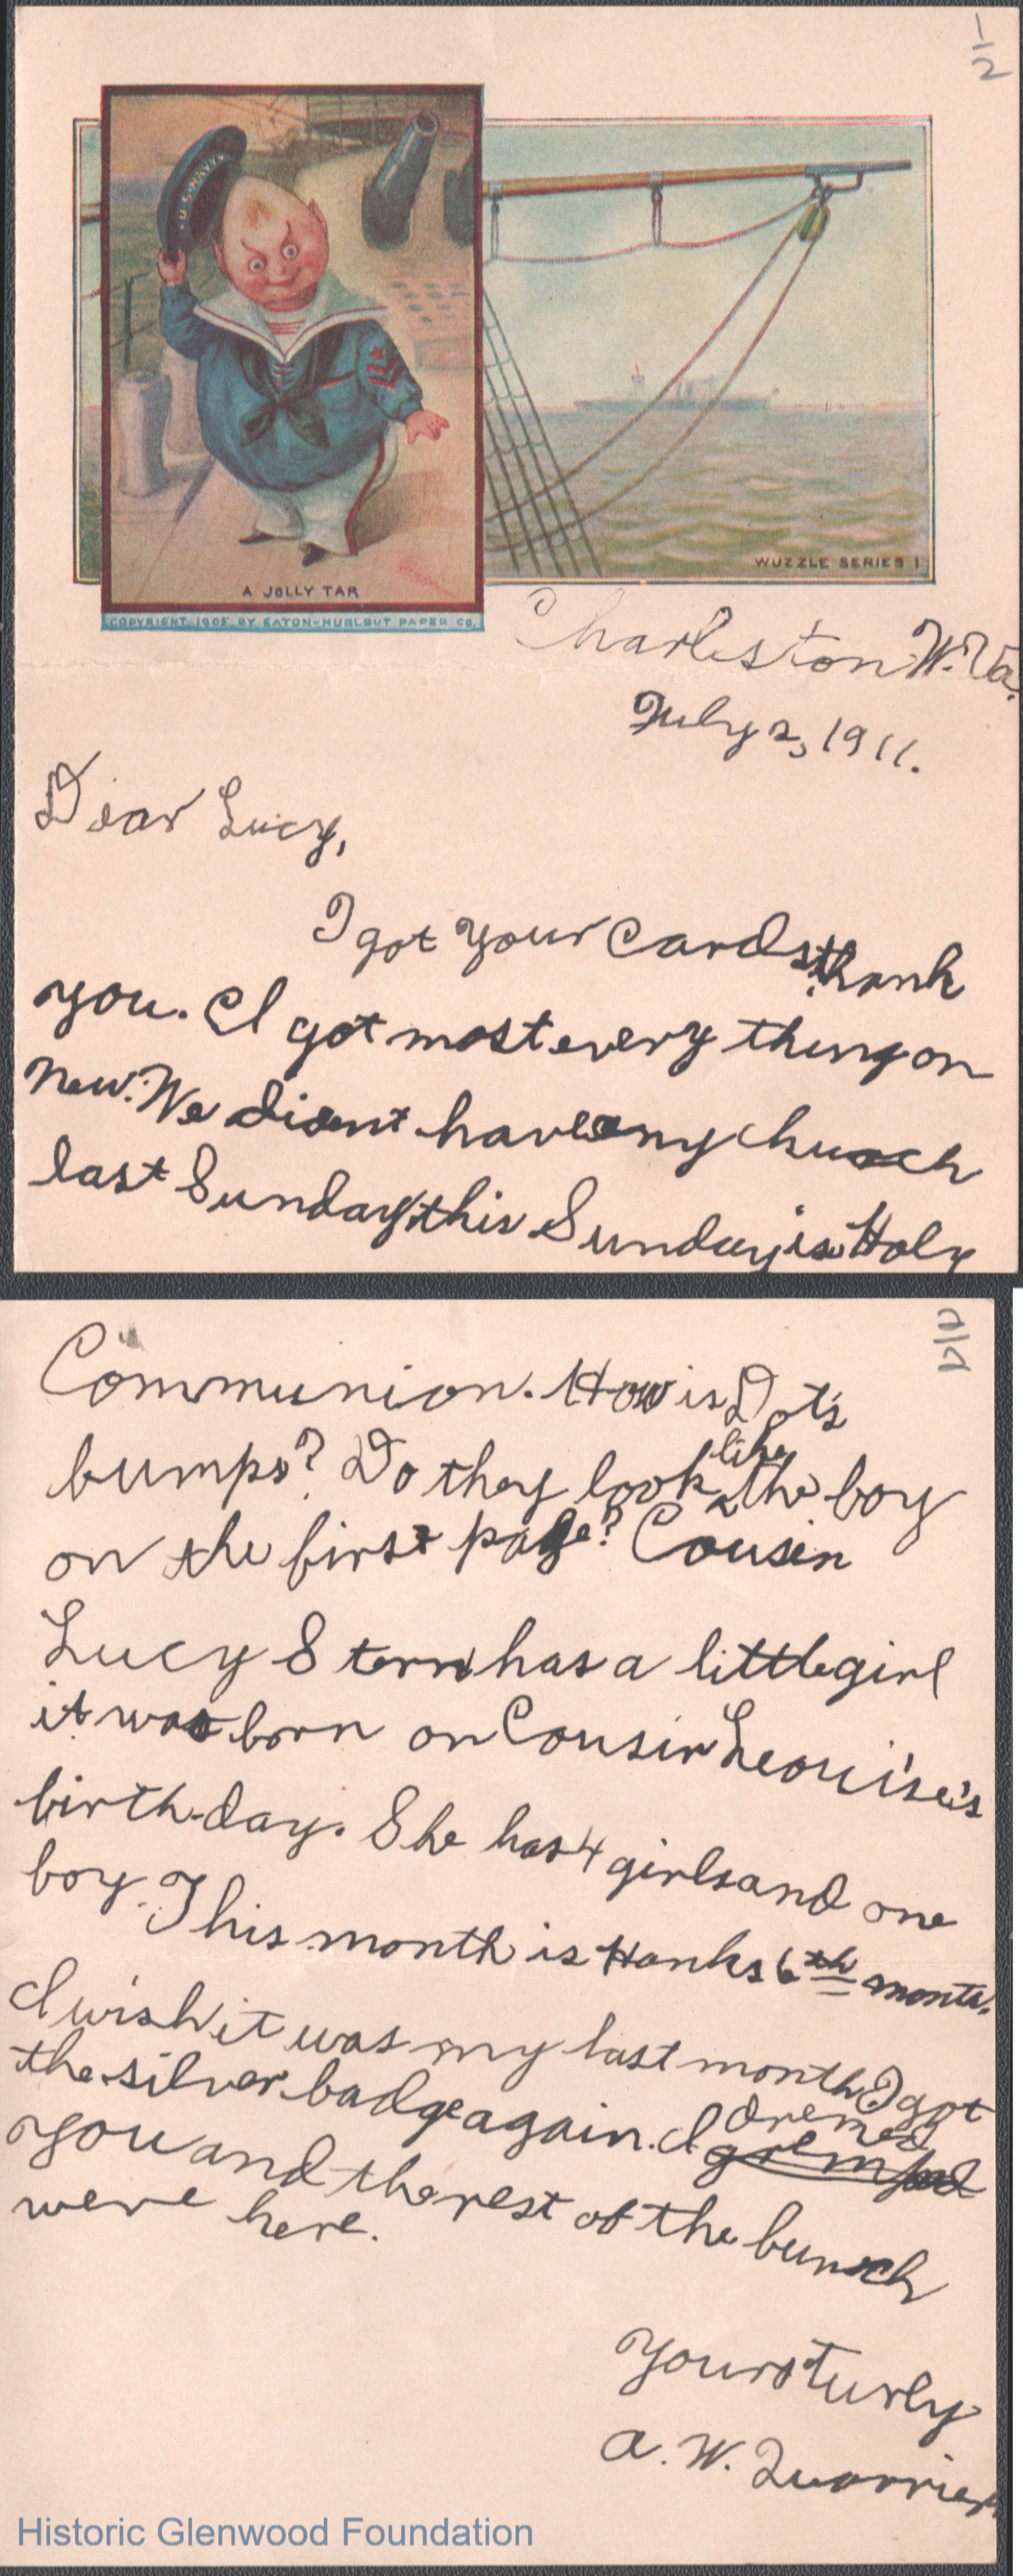 1/2
U.S. NAVY
A JOLLY TAR
WUZZLE SERIES 1
COPYRIGHT 1905 BY EATON-HURLBUT PAPER CO.
Charleston W. Va.
July 2, 1911.
Dear Lucy,
I got your cards, thank
you. I got most every thing on
new. We dident have any church
last Sunday, this Sunday is Holy
2/2
Communion. How is Dot's
like
bumps? Do they look ^ the boy
on the first page? Cousin
Lucy Stern has a little girl
it was born on Cousin Leouise's
birth-day. She has 4 girls and one
boy. This month is Hanks 6th month.
I wish it was my last month I got
the silver badge again. I dremed
you and the rest of the bunch
were here.
Yours turly
A. W. Quarrier
Historic Glenwood Foundation